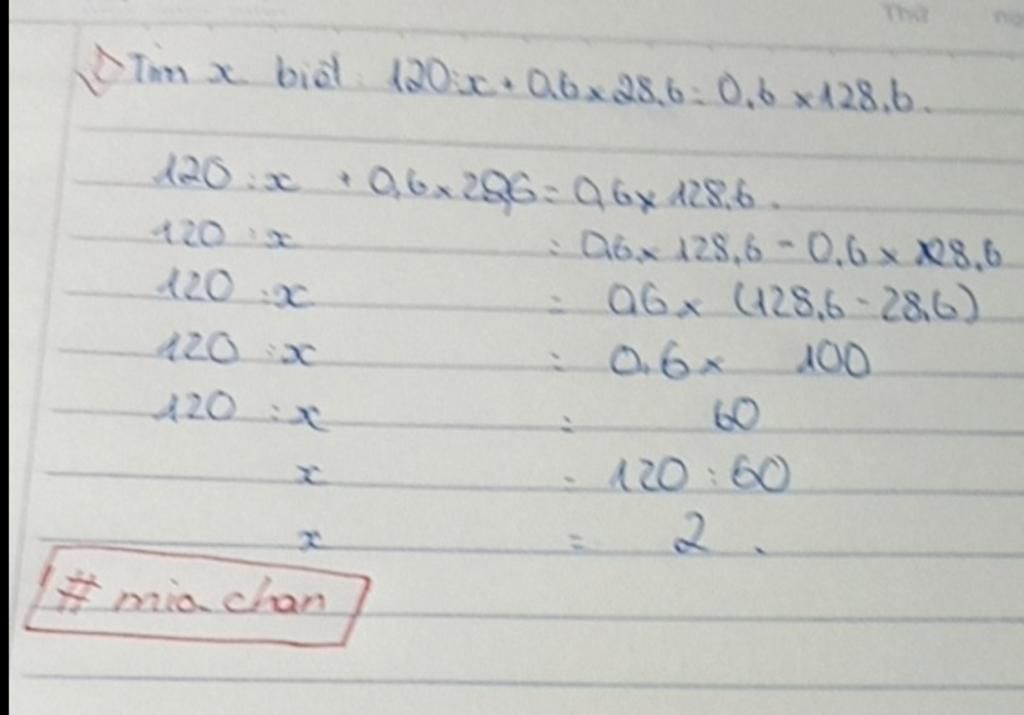 Thứ
Tìm x biết: 120:x + 0,6 × 28,6 = 0,6 × 128,6.
120 : x + 0,6 × 28,6 = 0,6 × 128,6.
120 : x = 0,6 × 128,6 - 0,6 × 28,6
120 : x = 0,6 × (128,6 - 28,6)
120 : x = 0,6 × 100
120 : x = 60
x = 120 : 60
x = 2.
# mia chan